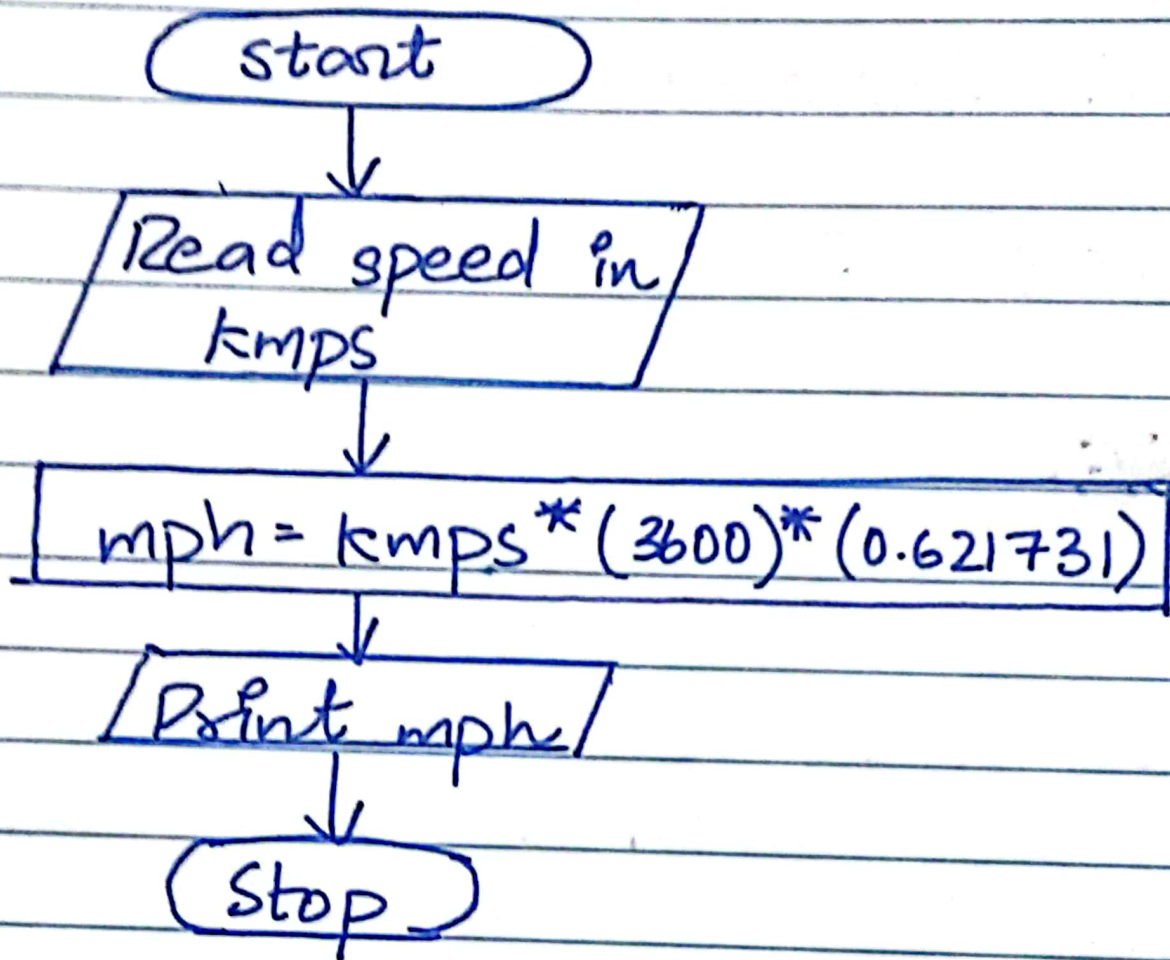 start
Read speed in
kmps
mph = kmps * (3600) * (0.621731)
Print mph
Stop